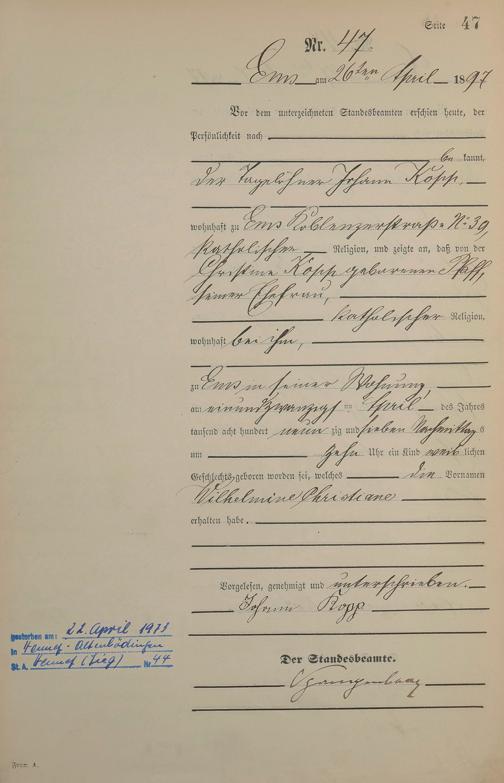 Seite 47
Nr. 47.
Ems am 26ten April 1897
Vor dem unterzeichneten Standesbeamten erschien heute, der
Persönlichkeit nach
be kannt,
der Tagelöhner Johann Kopp,
wohnhaft zu Ems Koblenzerstraße No 39,
katholischer Religion, und zeigte an, daß von der
Christine Kopp geborenen Pfaff,
seiner Ehefrau,
katholischer Religion,
wohnhaft bei ihm,
zu Ems in seiner Wohnung,
am einundzwanzigsten April des Jahres
tausend acht hundert neunzig und sieben Nachmittags
um zehn Uhr ein Kind weiblichen
Geschlechts geboren worden sei, welches die Vornamen
Wilhelmine Christiane
erhalten habe.
Vorgelesen, genehmigt und unterschrieben.
Johann Kopp
gestorben am: 22. April 1973
in Hennef-Altenbödingen
St.A. Hennef (Sieg) Nr. 44
Der Standesbeamte.
Form. A.